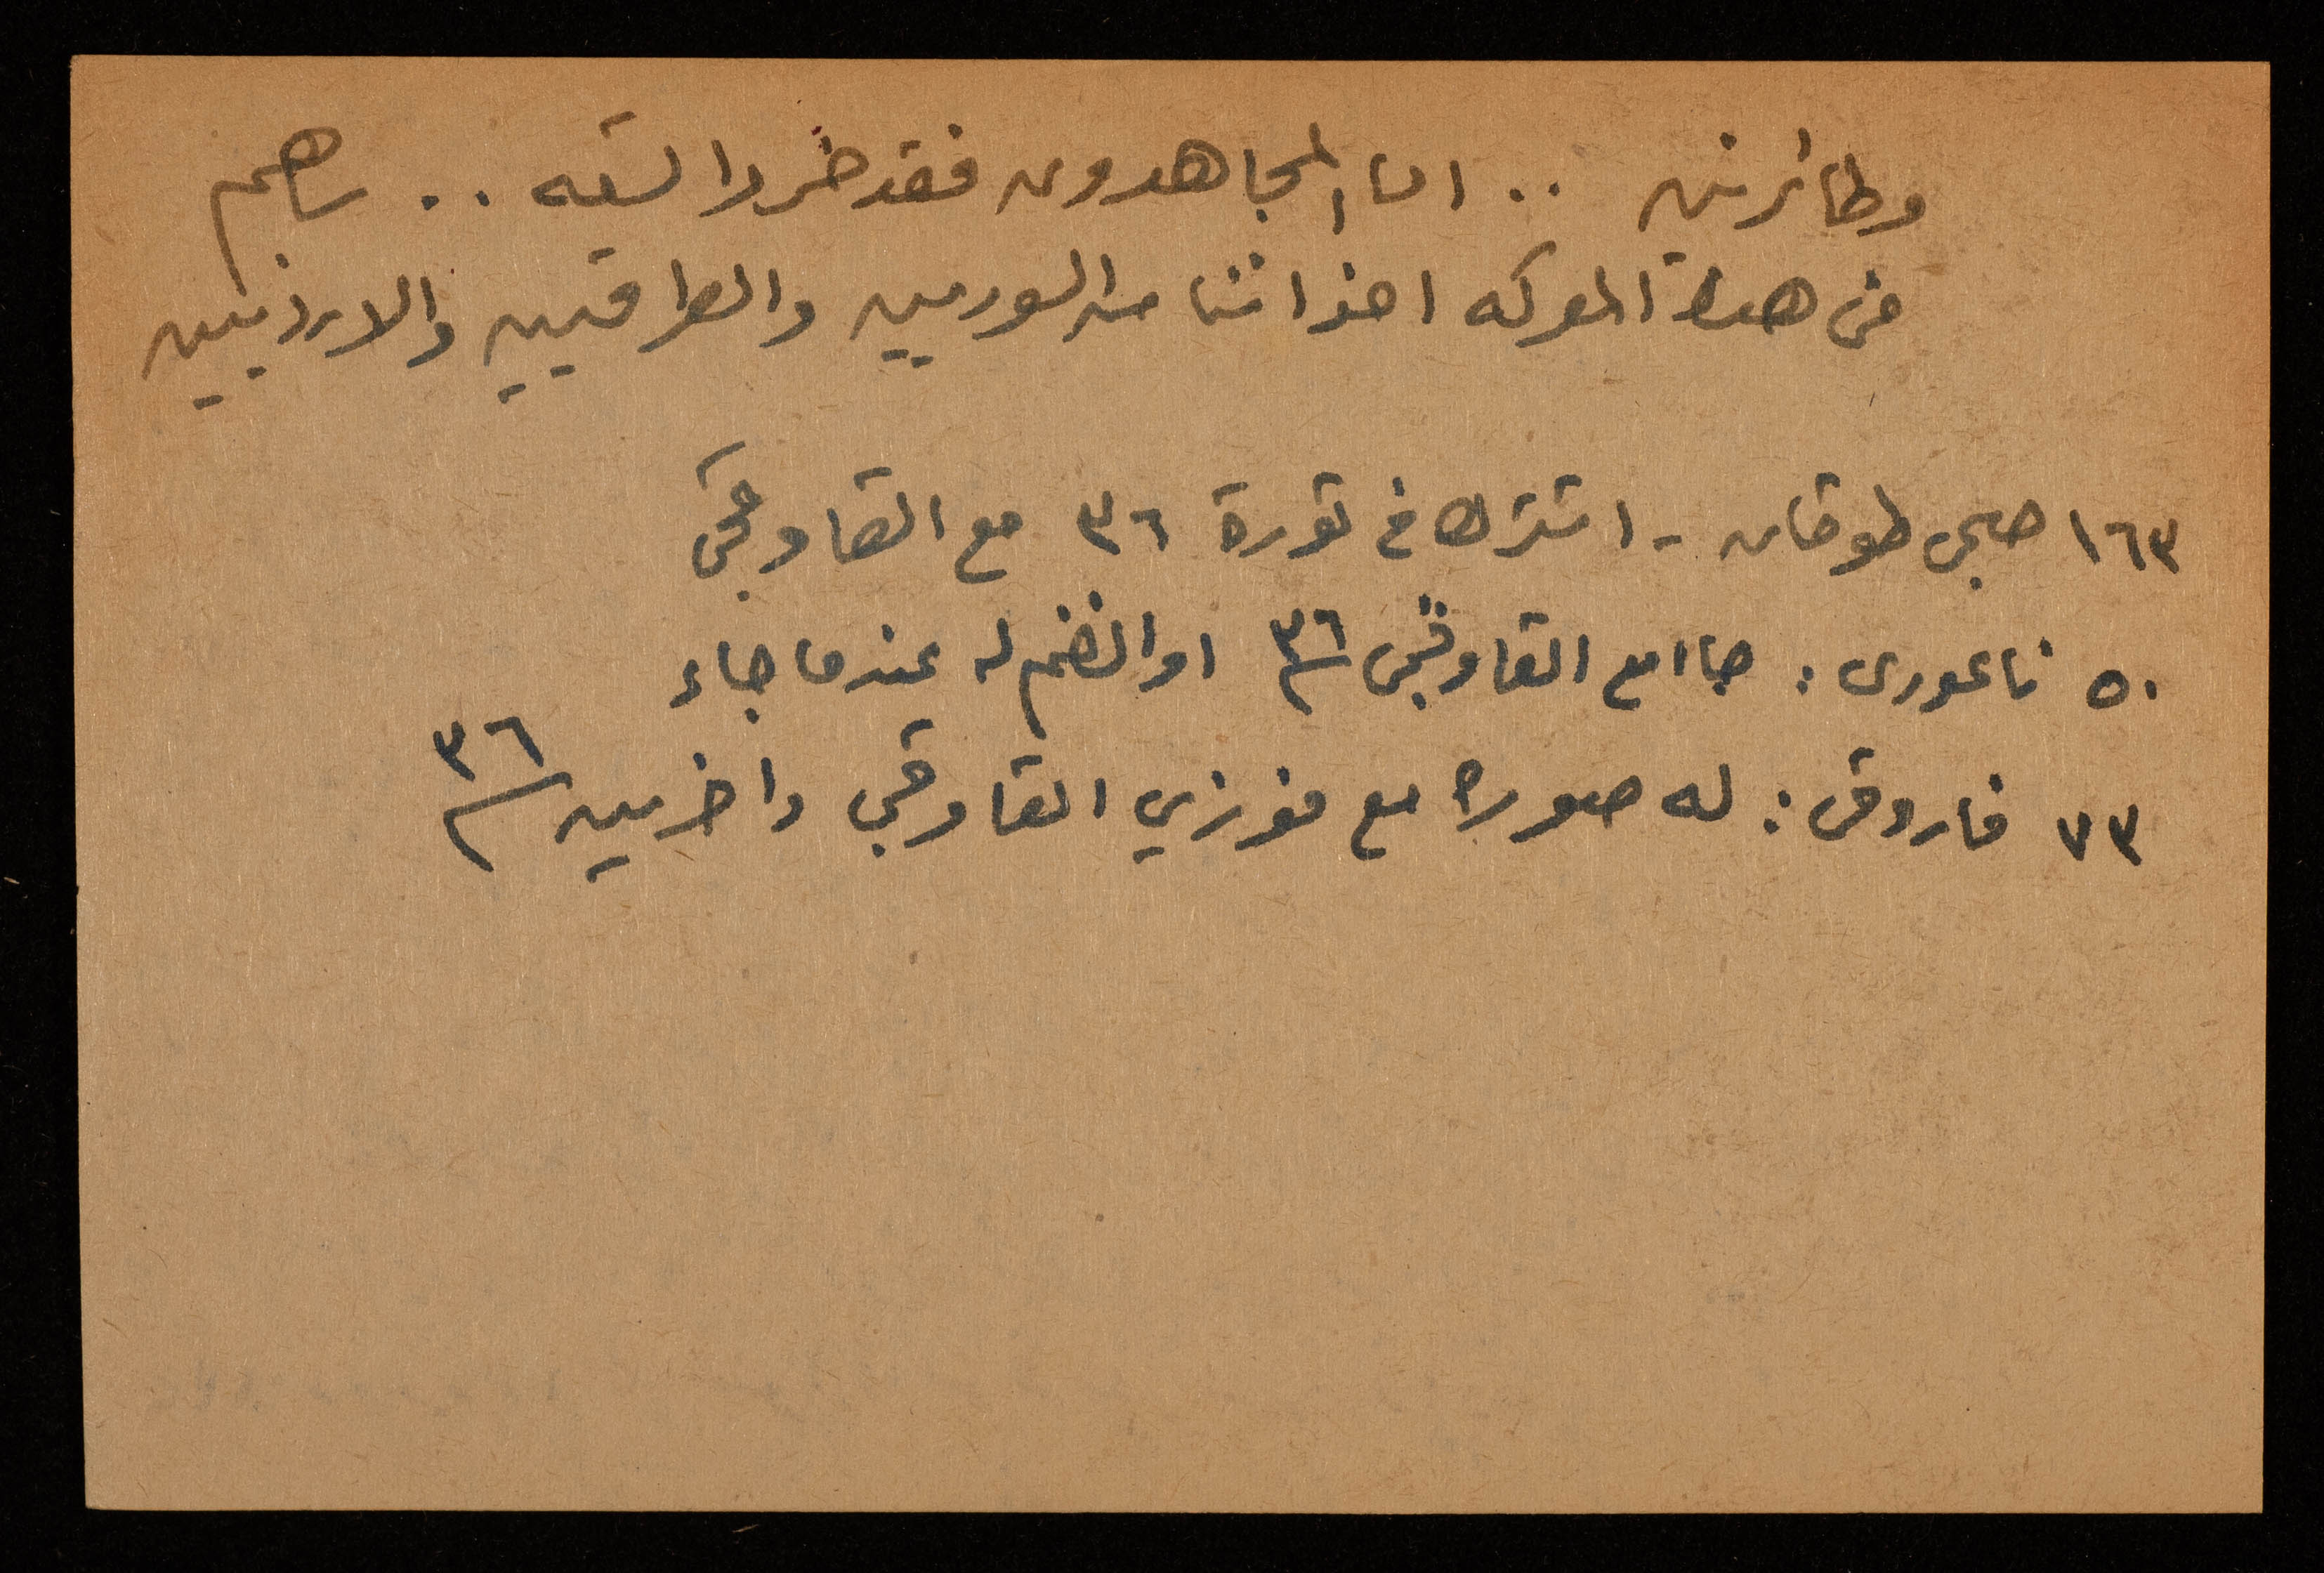 وطائرتين .. اما المجاهدون فقد خسروا تسعه .. ساهم
في هذه المعركه اخواننا من السوريين والعراقيين والاردنيين
١٦٣ صبحي طوقان - اشترك في ثورة ٣٦ مع القاوقجي
٥٠ ناعوري : جاء مع القاوقجي ٣٦ او انضم له عندما جاء
٧٣ فاروق : له صوره مع فوزي القاوقجي واخرين ٣٦